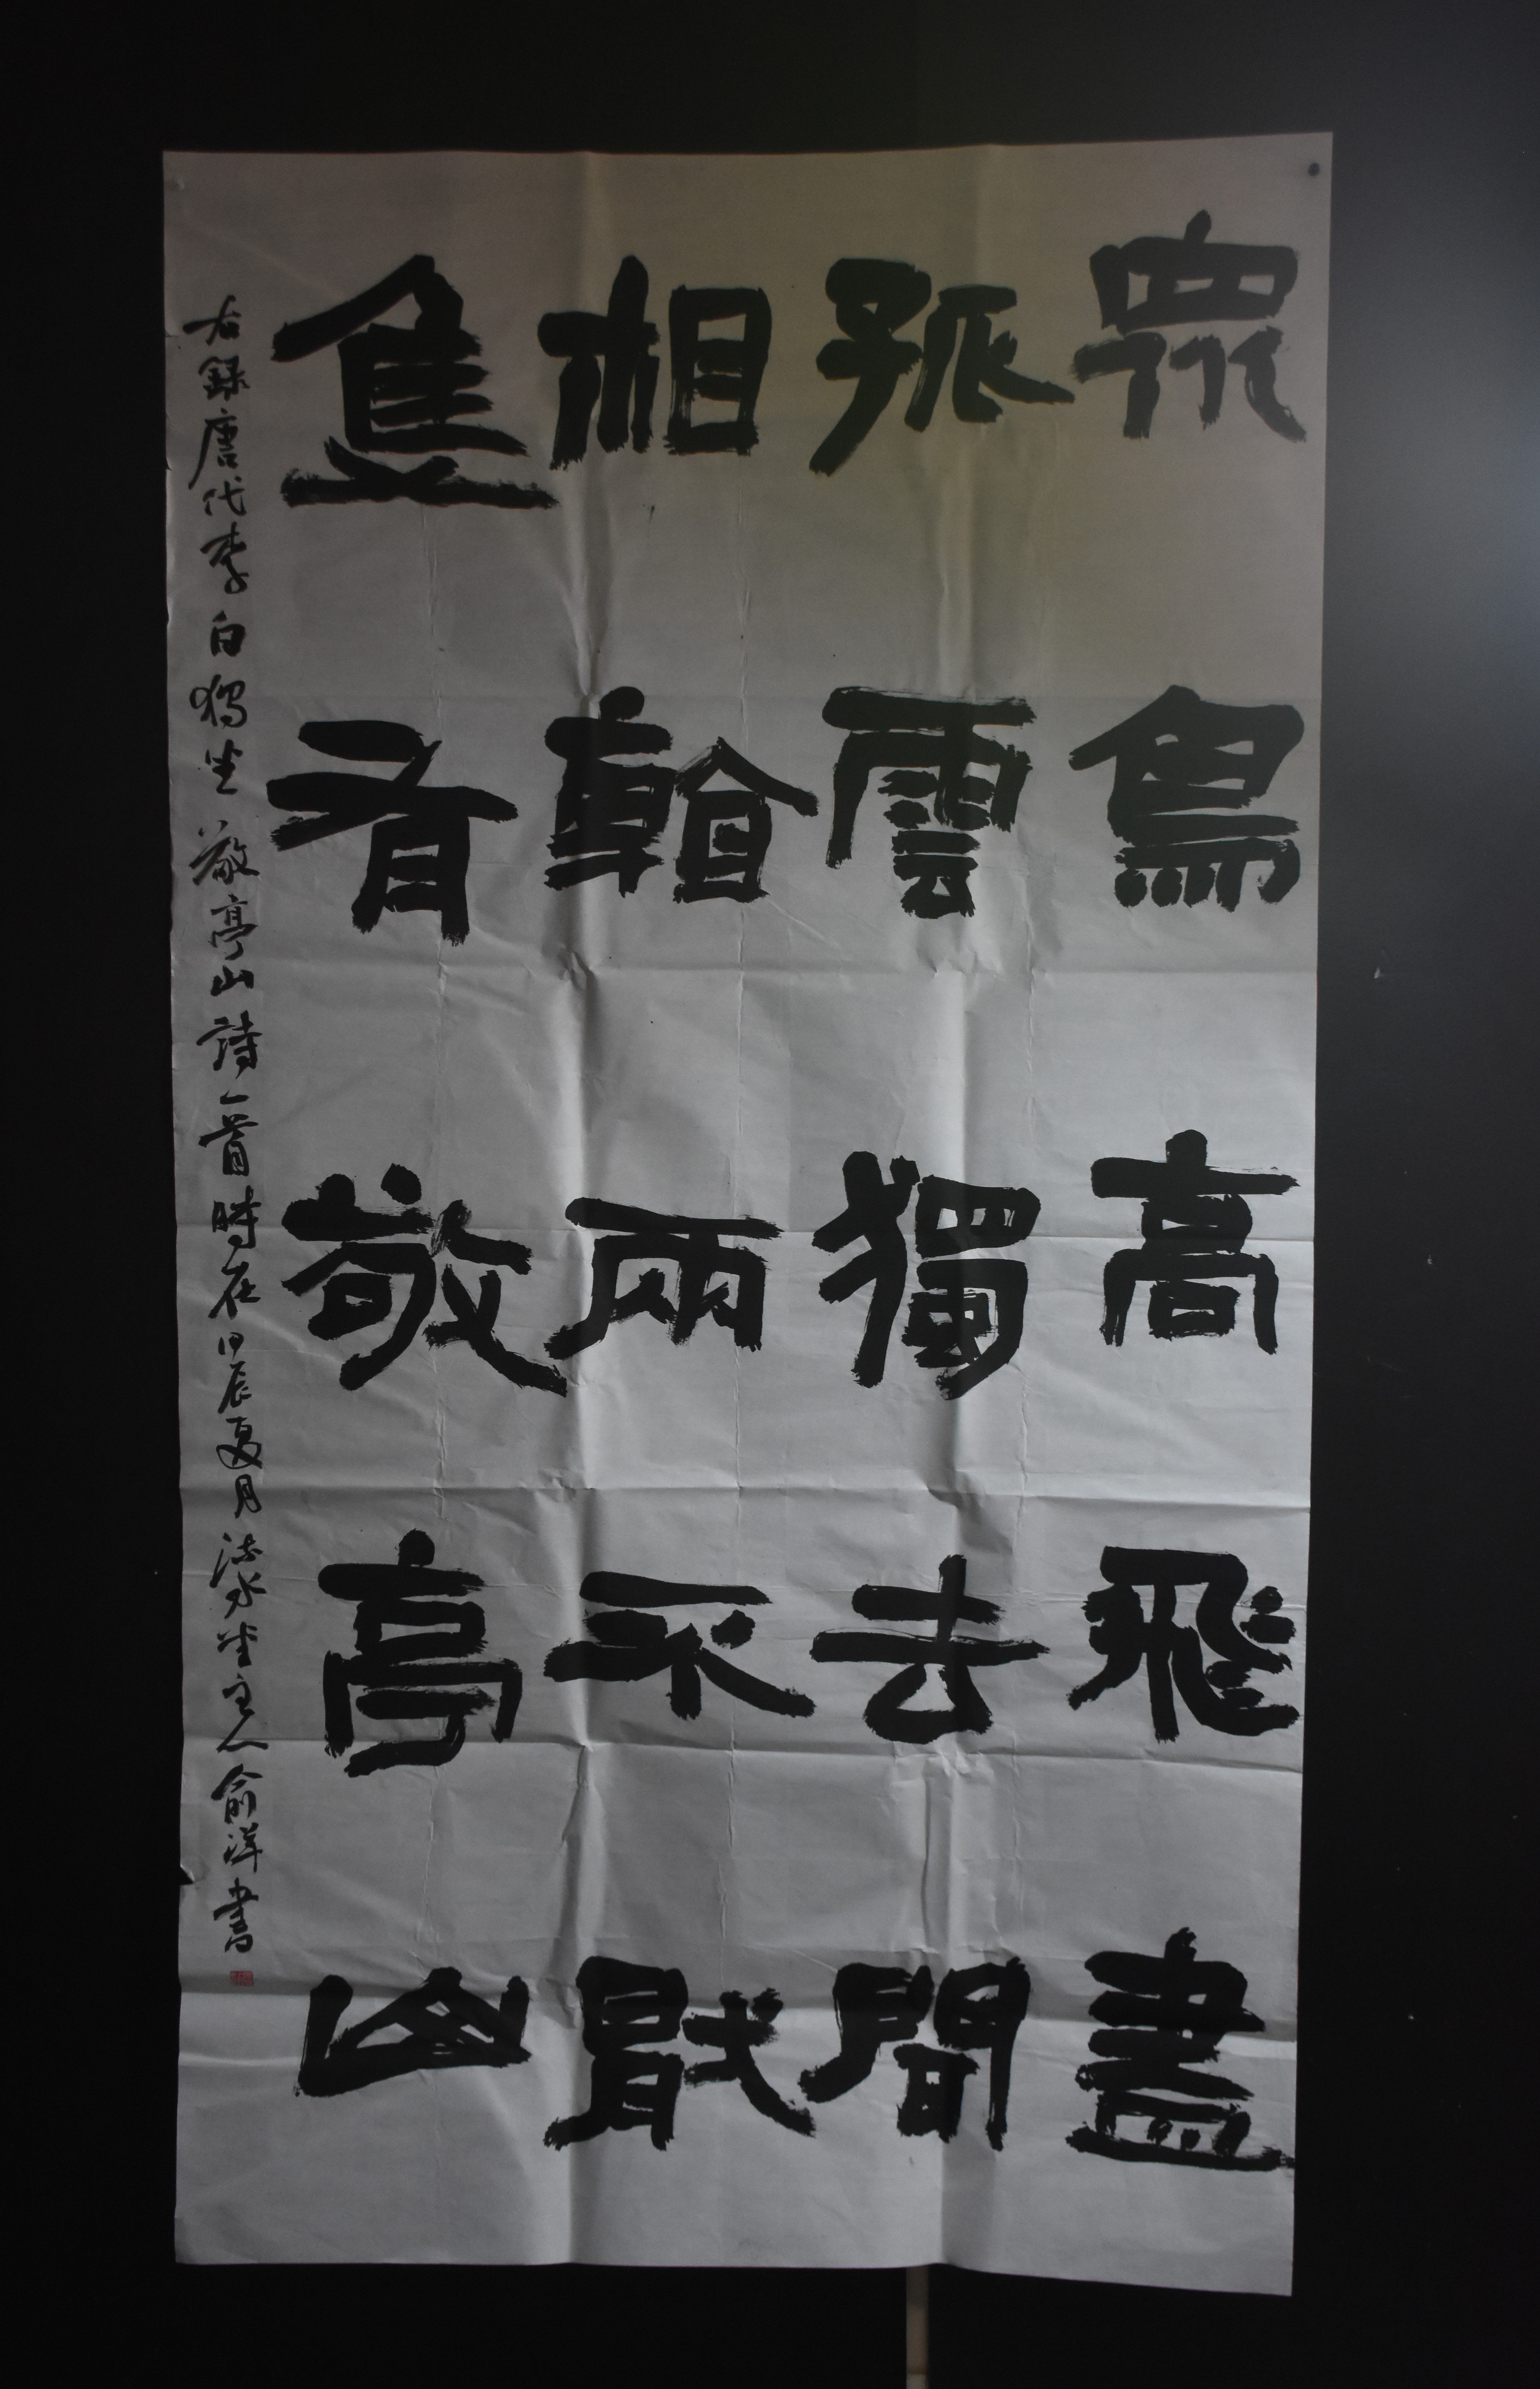 眾鳥高飛盡
孤雲獨去間
相兩不猒
隻有敬亭山
右錄唐代李白獨坐敬亭山詩一首時在甲辰夏月水堂主人俞洋書